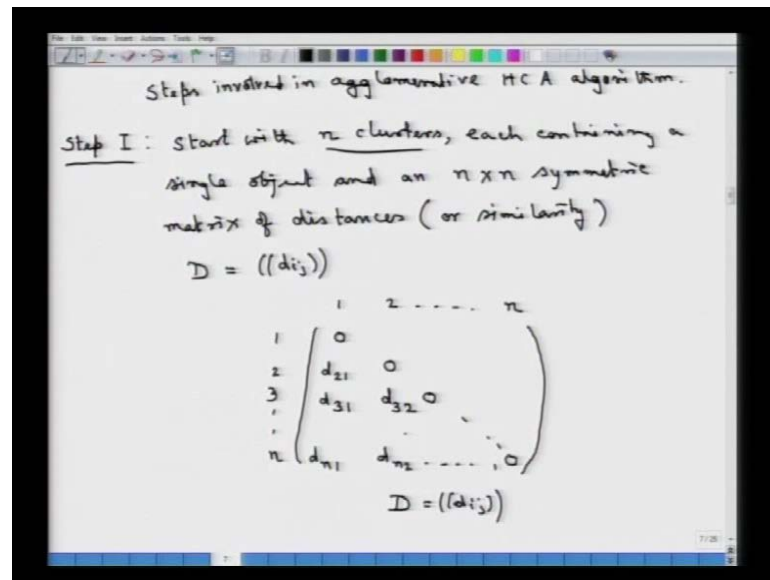 File Edit View Insert Actions Tools Help
Steps involved in agglomerative HCA algorithm.
Step I : Start with n clusters, each containing a
single object and an n x n symmetric
matrix of distances ( or similarity )
D = ((dij))
1 2 - - - - . n
1 0
2 d21 0
3 d31 d32 0
n dn1 dn2 - - - - . , 0
D = ((dij))
7/26
7